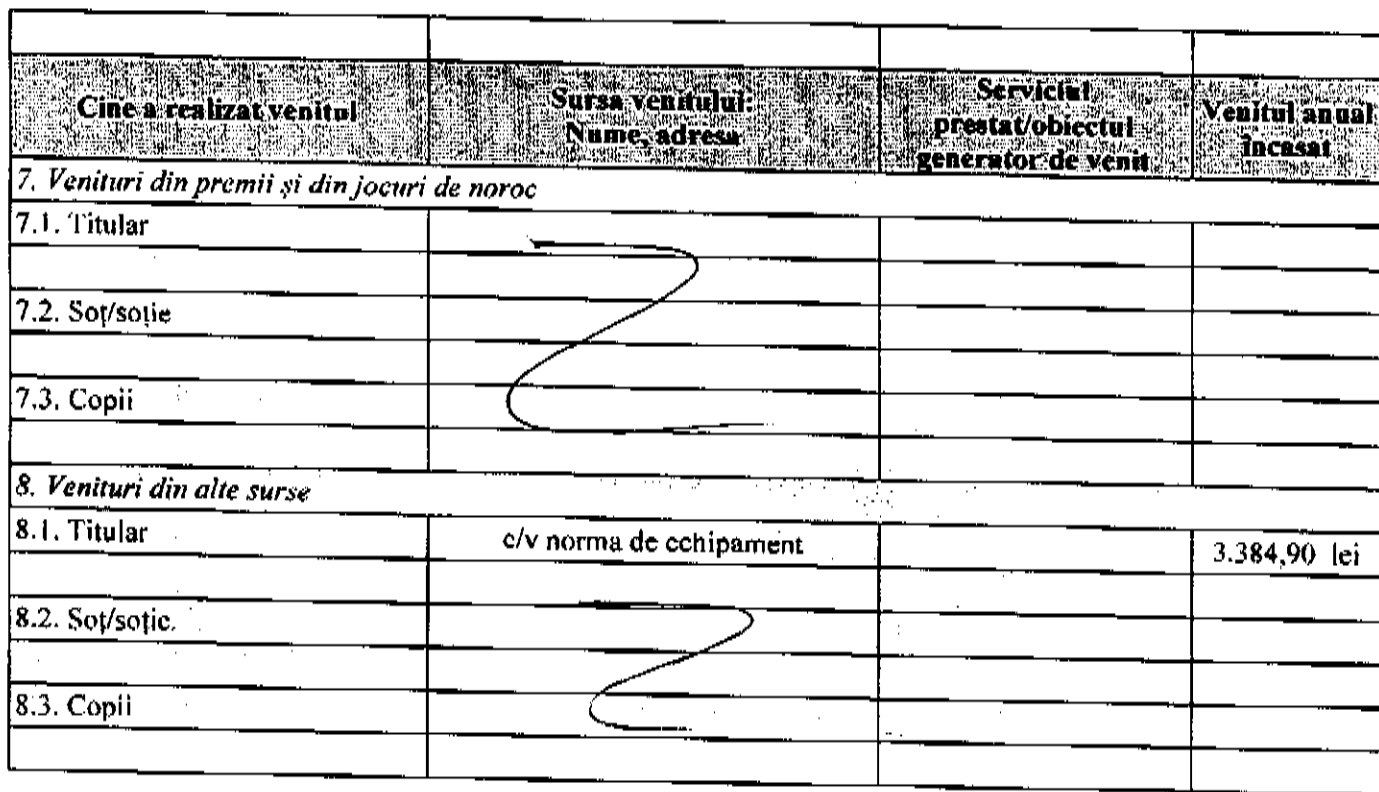 Cine a realizat venitul
Sursa venitului:
Nume, adresa
Serviciul
prestat/obiectul
generator de venit
Venitul anual
încasat
7. Venituri din premii și din jocuri de noroc
7.1. Titular
7.2. Soţ/soţie
7.3. Copii
8. Venituri din alte surse
8.1. Titular
c/v norma de echipament
3.384,90 lei
8.2. Soţ/soţie.
8.3. Copii